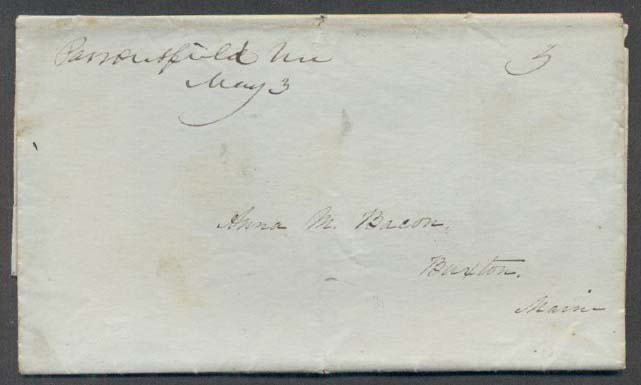 Parsonsfield Me 5
May 3
Anna M. Bacon.
Buxton.
Maine